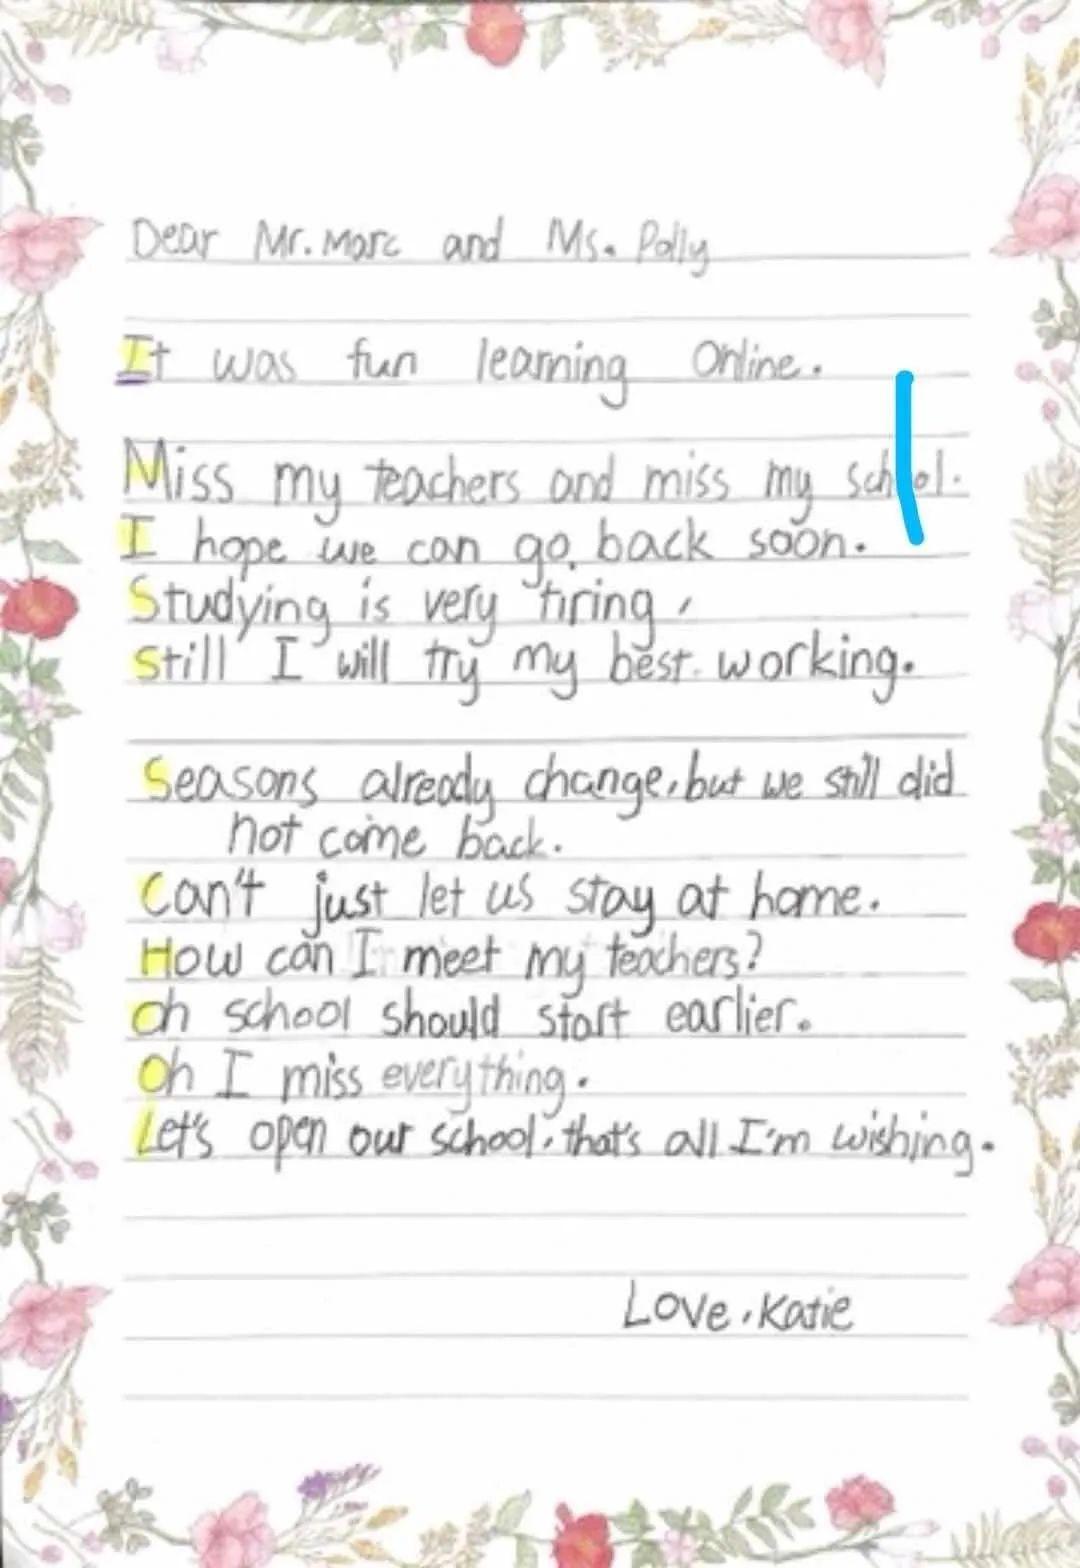 Dear Mr. Marc and Ms. Polly
It was fun learning Online.
Miss my teachers and miss my school.
I hope we can go back soon.
Studying is very tiring,
still I will try my best working.
Seasons already change, but we still did
not come back.
Can't just let us stay at home.
How can I meet my teachers?
oh school should start earlier.
Oh I miss everything.
Let's open our school, that's all I'm wishing.
Love, Katie